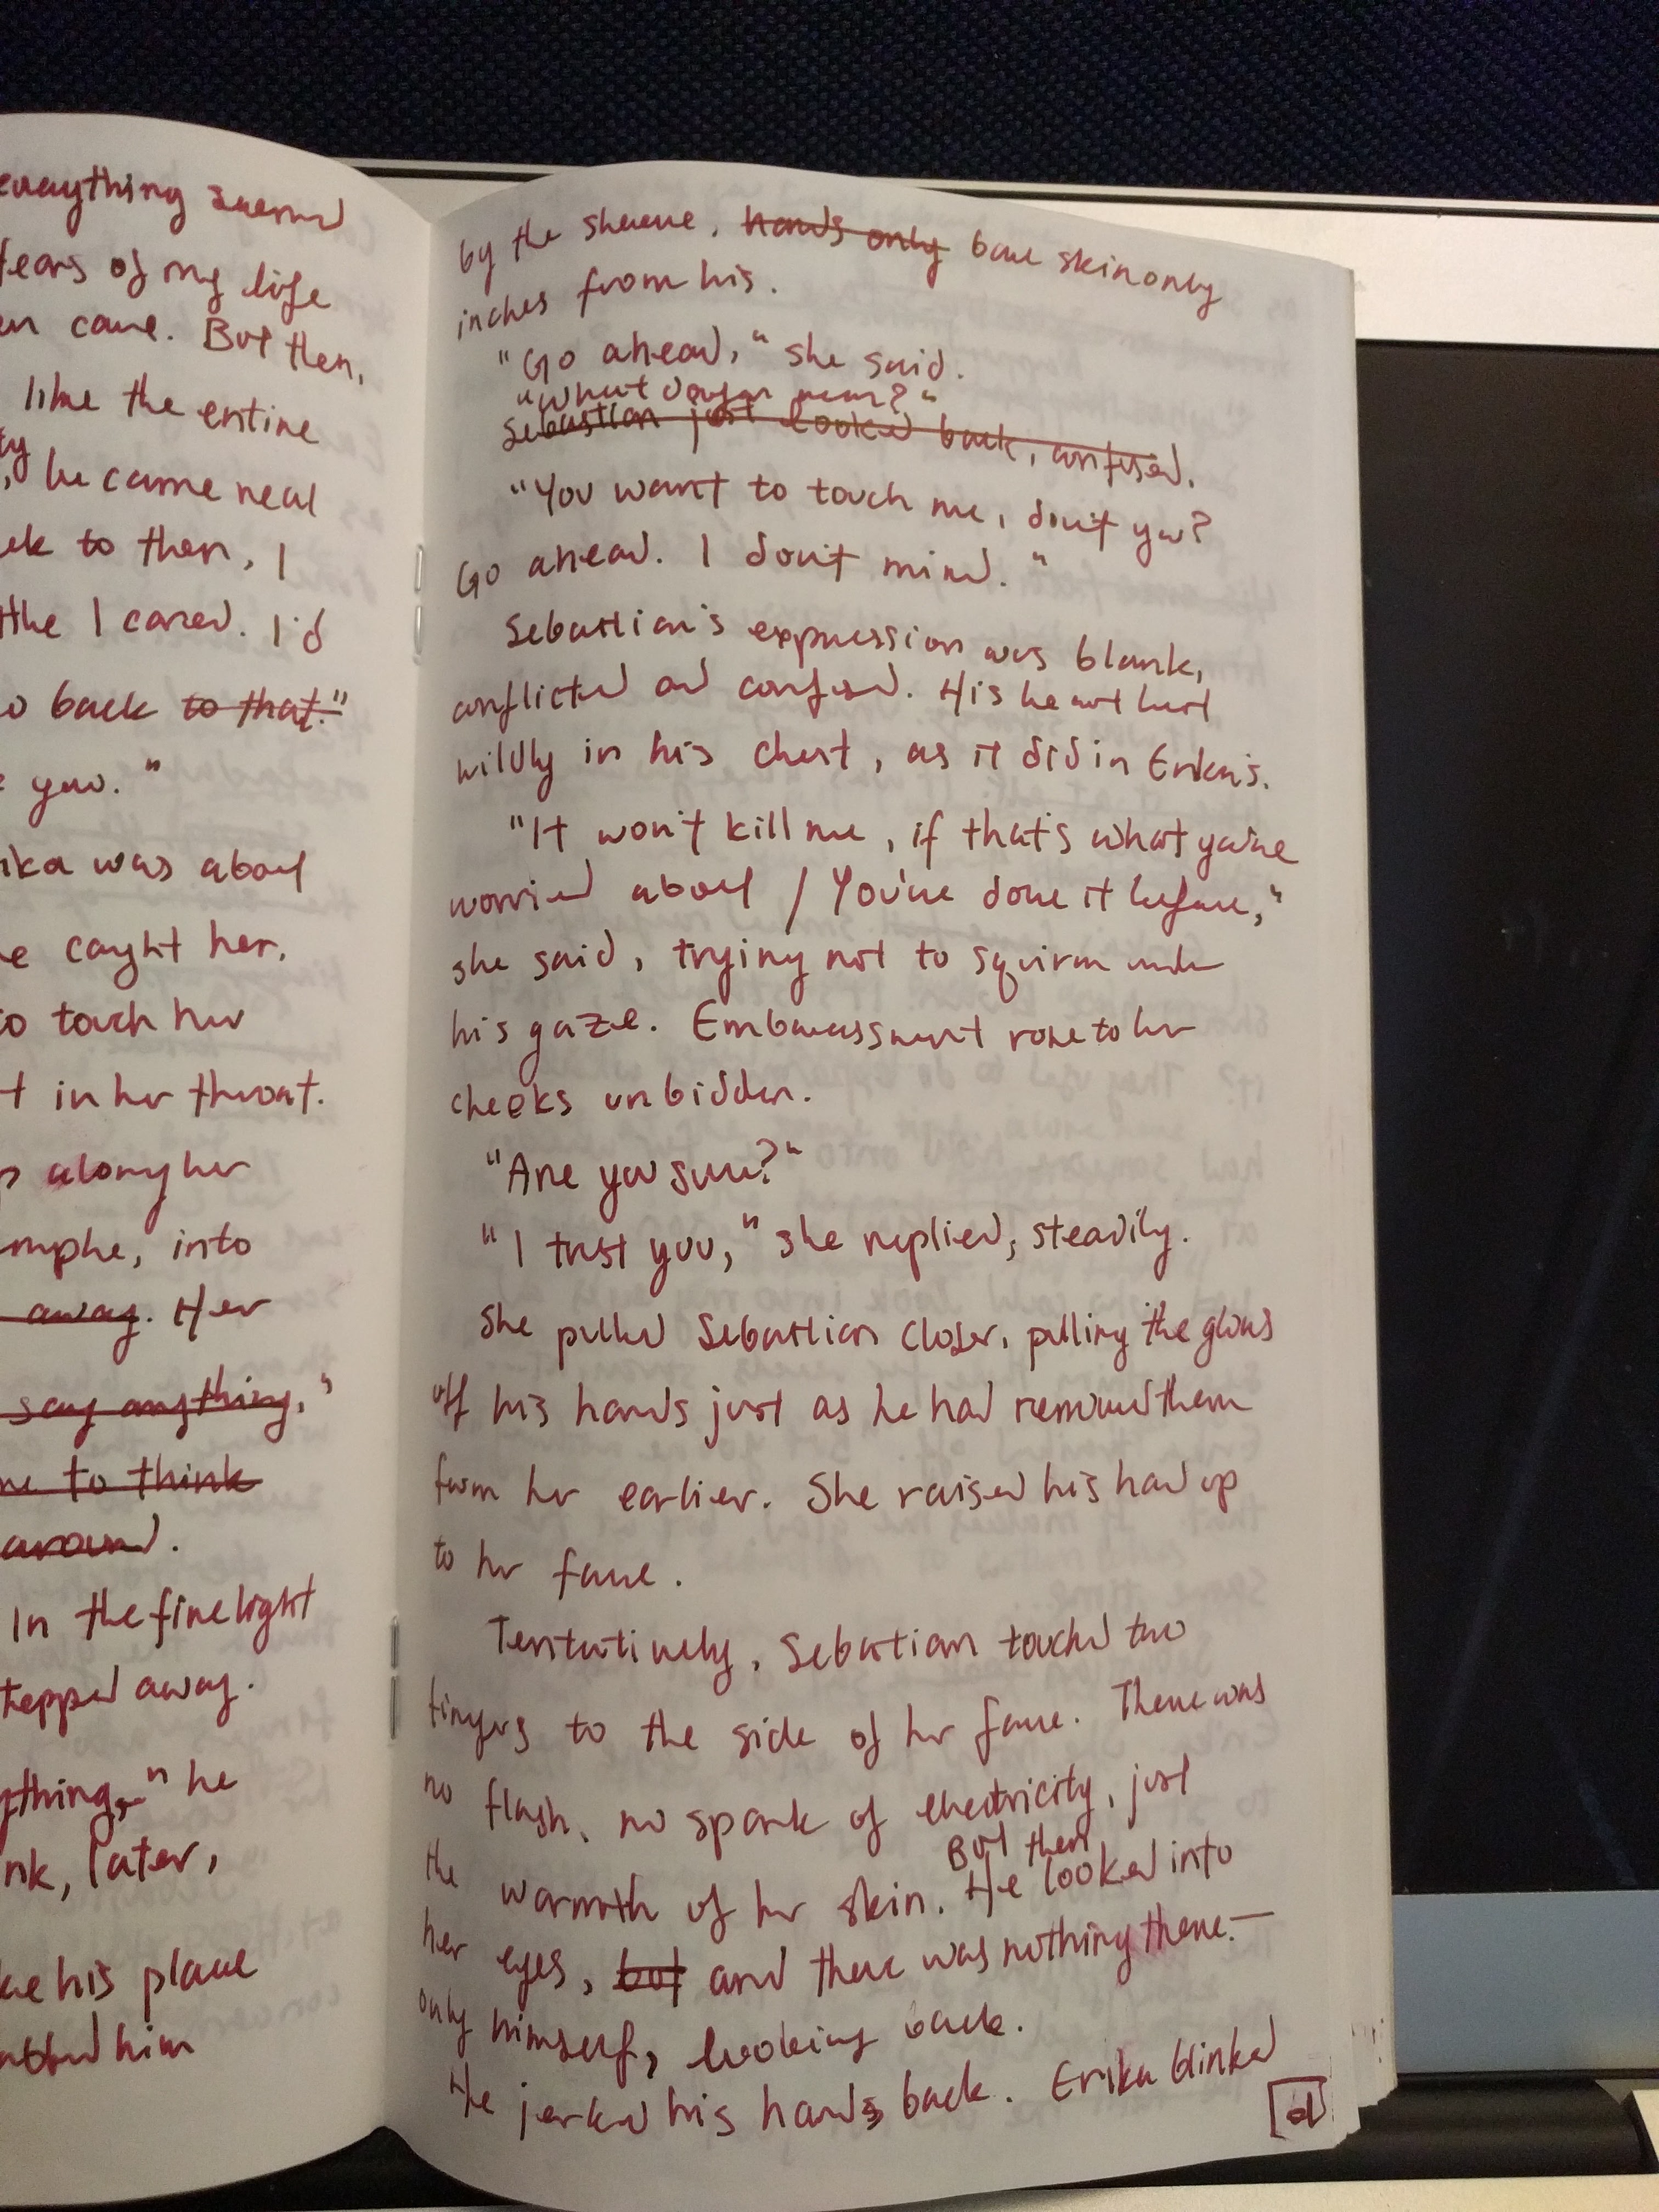 everything seemed
years of my life
came. But then,
like the entire
he came near
to then, I
I cared. I'd
back to that."
you."
was about
caught her.
to touch her
in her throat.
along her
into
away. Her
say anything,"
to think
around.
In the fire light
stepped away.
he
later,
his place
him
by the sleeve, hands only bare skin only
inches from his.
"Go ahead," she said.
"What do you mean?"
Sebastian just looked back, confused.
"You want to touch me, don't you?
Go ahead. I don't mind."
Sebastian's expression was blank,
conflicted and confused. His heart
wildly in his chest, as it did in Erika's.
"It won't kill me, if that's what you're
worried about / You've done it before,"
she said, trying not to squirm under
his gaze. Embarassment rose to her
cheeks unbidden.
"Are you sure?"
"I trust you," she replied, steadily.
She pulled Sebastian closer, pulling the gloves
off his hands just as he had removed them
from her earlier. She raised his hand up
to her face.
Tentatively, Sebastian touched two
fingers to the side of her face. There was
no flash, no spark of electricity, just
the warmth of her skin. But then He looked into
her eyes, but and there was nothing there—
only himself, looking back.
He jerked his hands back. Erika blinked